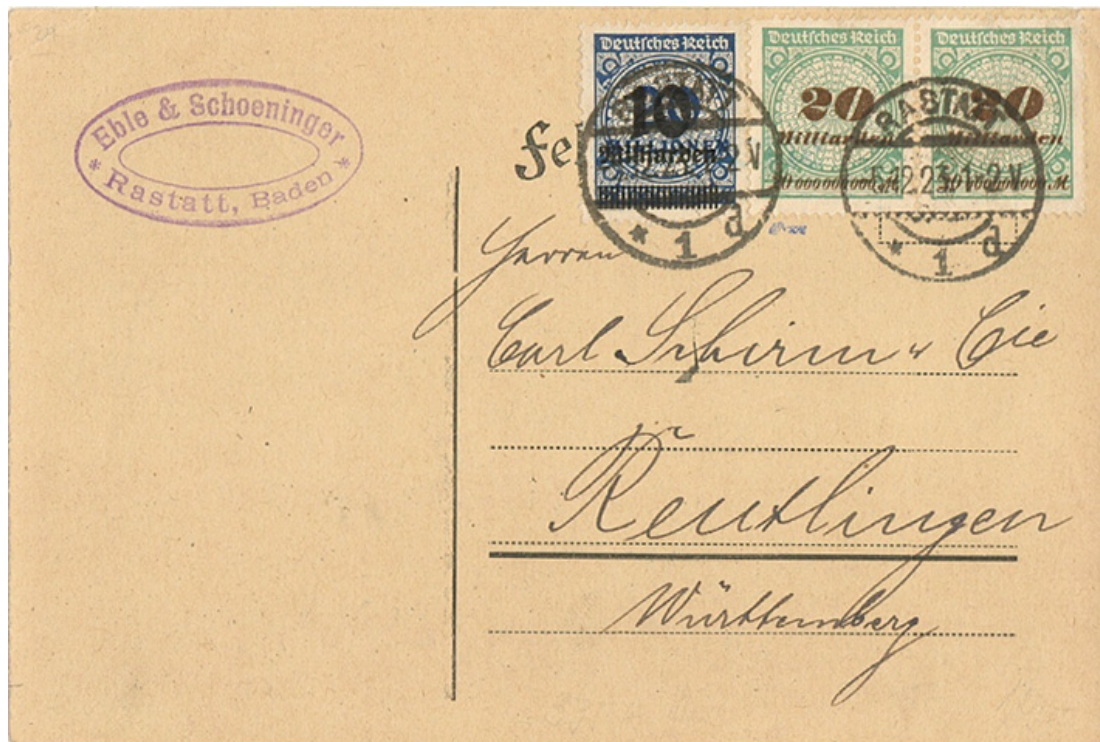 Eble & Schoeninger
* Rastatt, Baden *
Deutsches Reich
10
Milliarden
Deutsches Reich
20
Milliarden
Deutsches Reich
20
Milliarden
RASTATT
* 1 d
RASTATT
12.23.1-2 V
* 1 d
Herren
Carl Schirm & Cie
Reutlingen
Württemberg